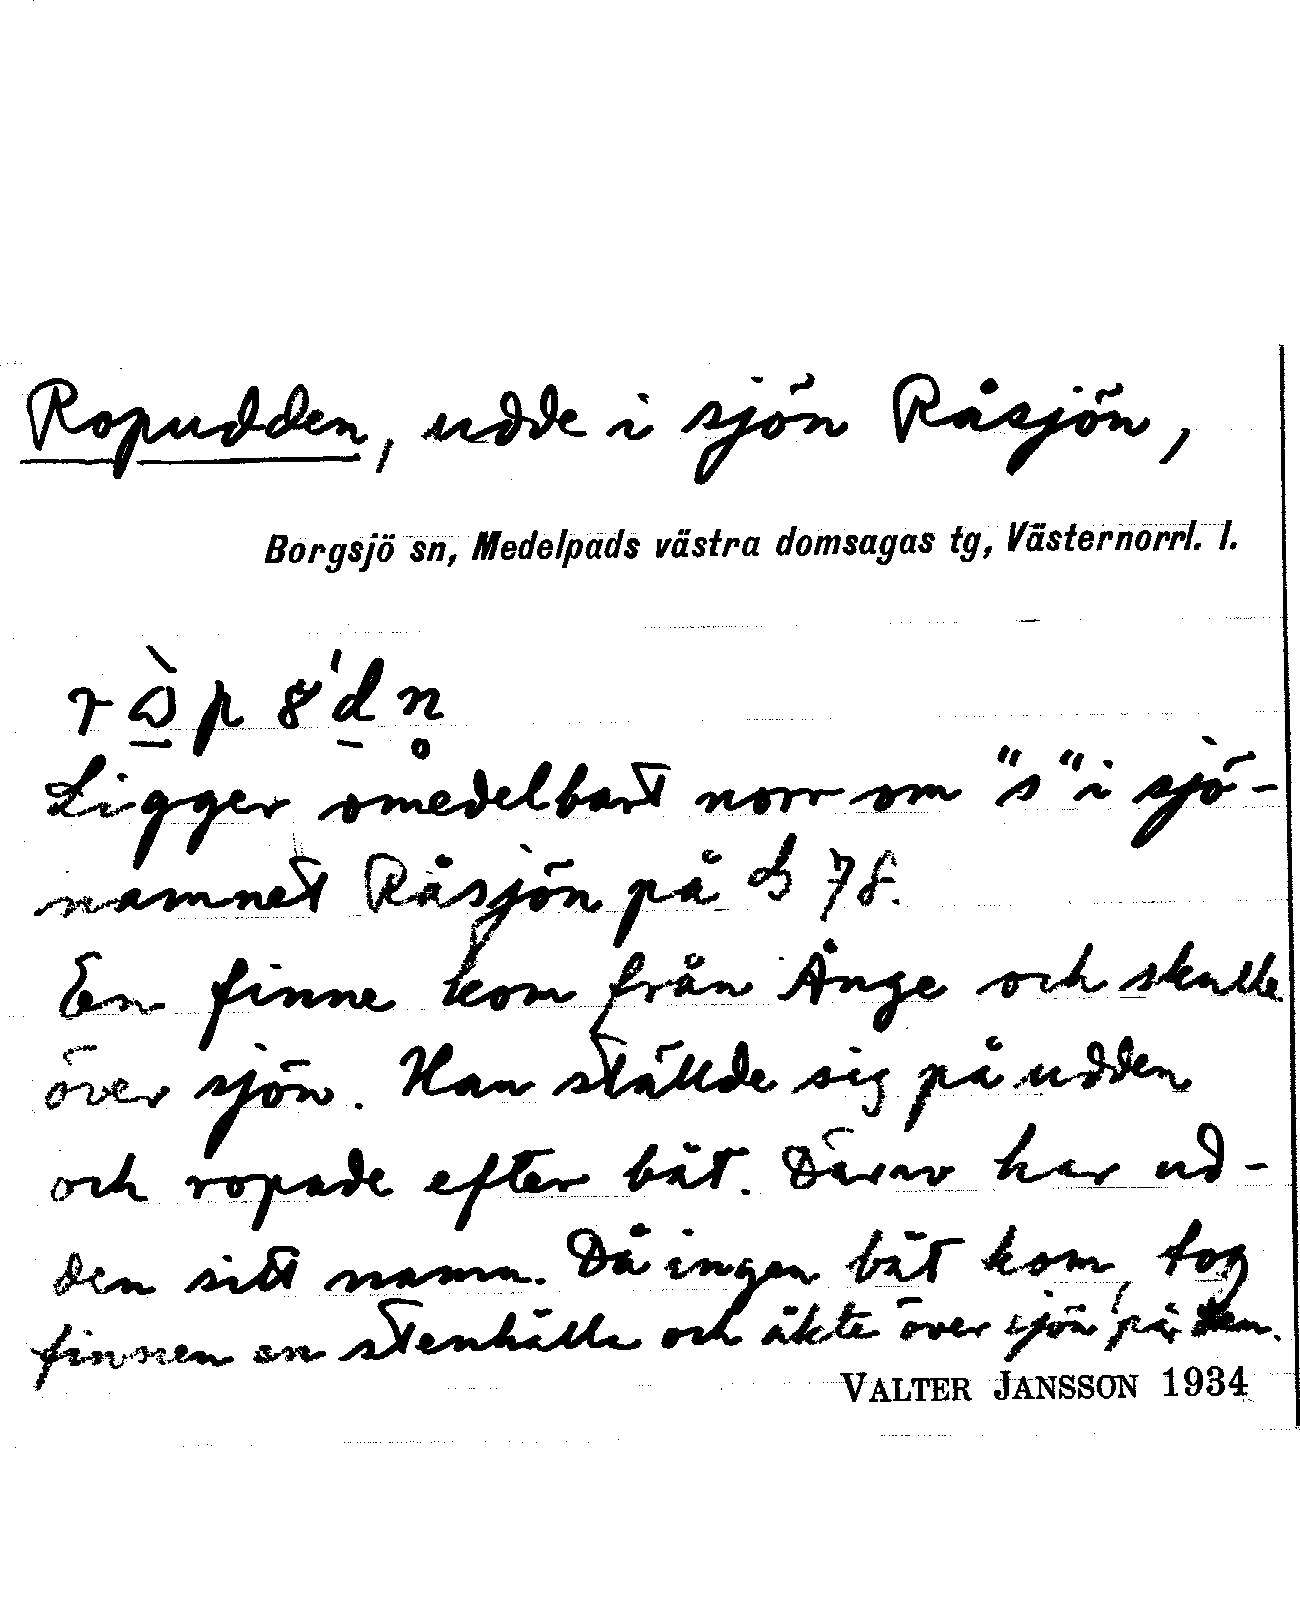 Ropudden, udde i sjön Råsjön,
Borgsjö sn, Medelpads västra domsagas tg, Västernorrl. l.
Ligger omedelbart norr om "s" i sjö-
namnet Råsjön på 78.
En finne kom från Ånge och skulle
över sjön. Han ställde sig på udden
och ropade efter båt. Därav har ud-
den sitt namn. Då ingen båt kom, tog
finnen en stenhälla och åkte över sjön på den.
VALTER JANSSON 1934